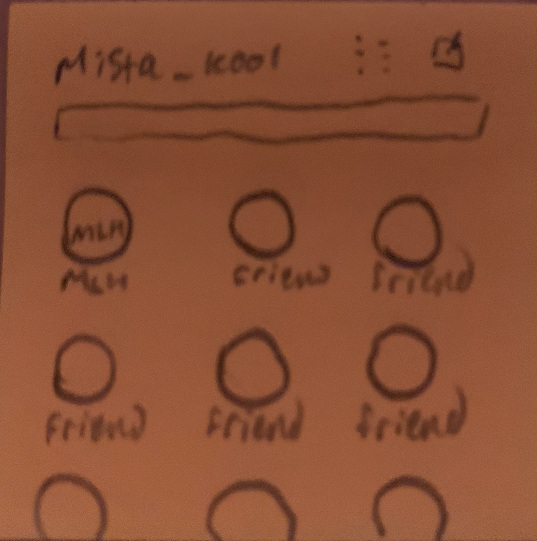 Mista_kool
MLH
MLH friend friend
friend friend friend